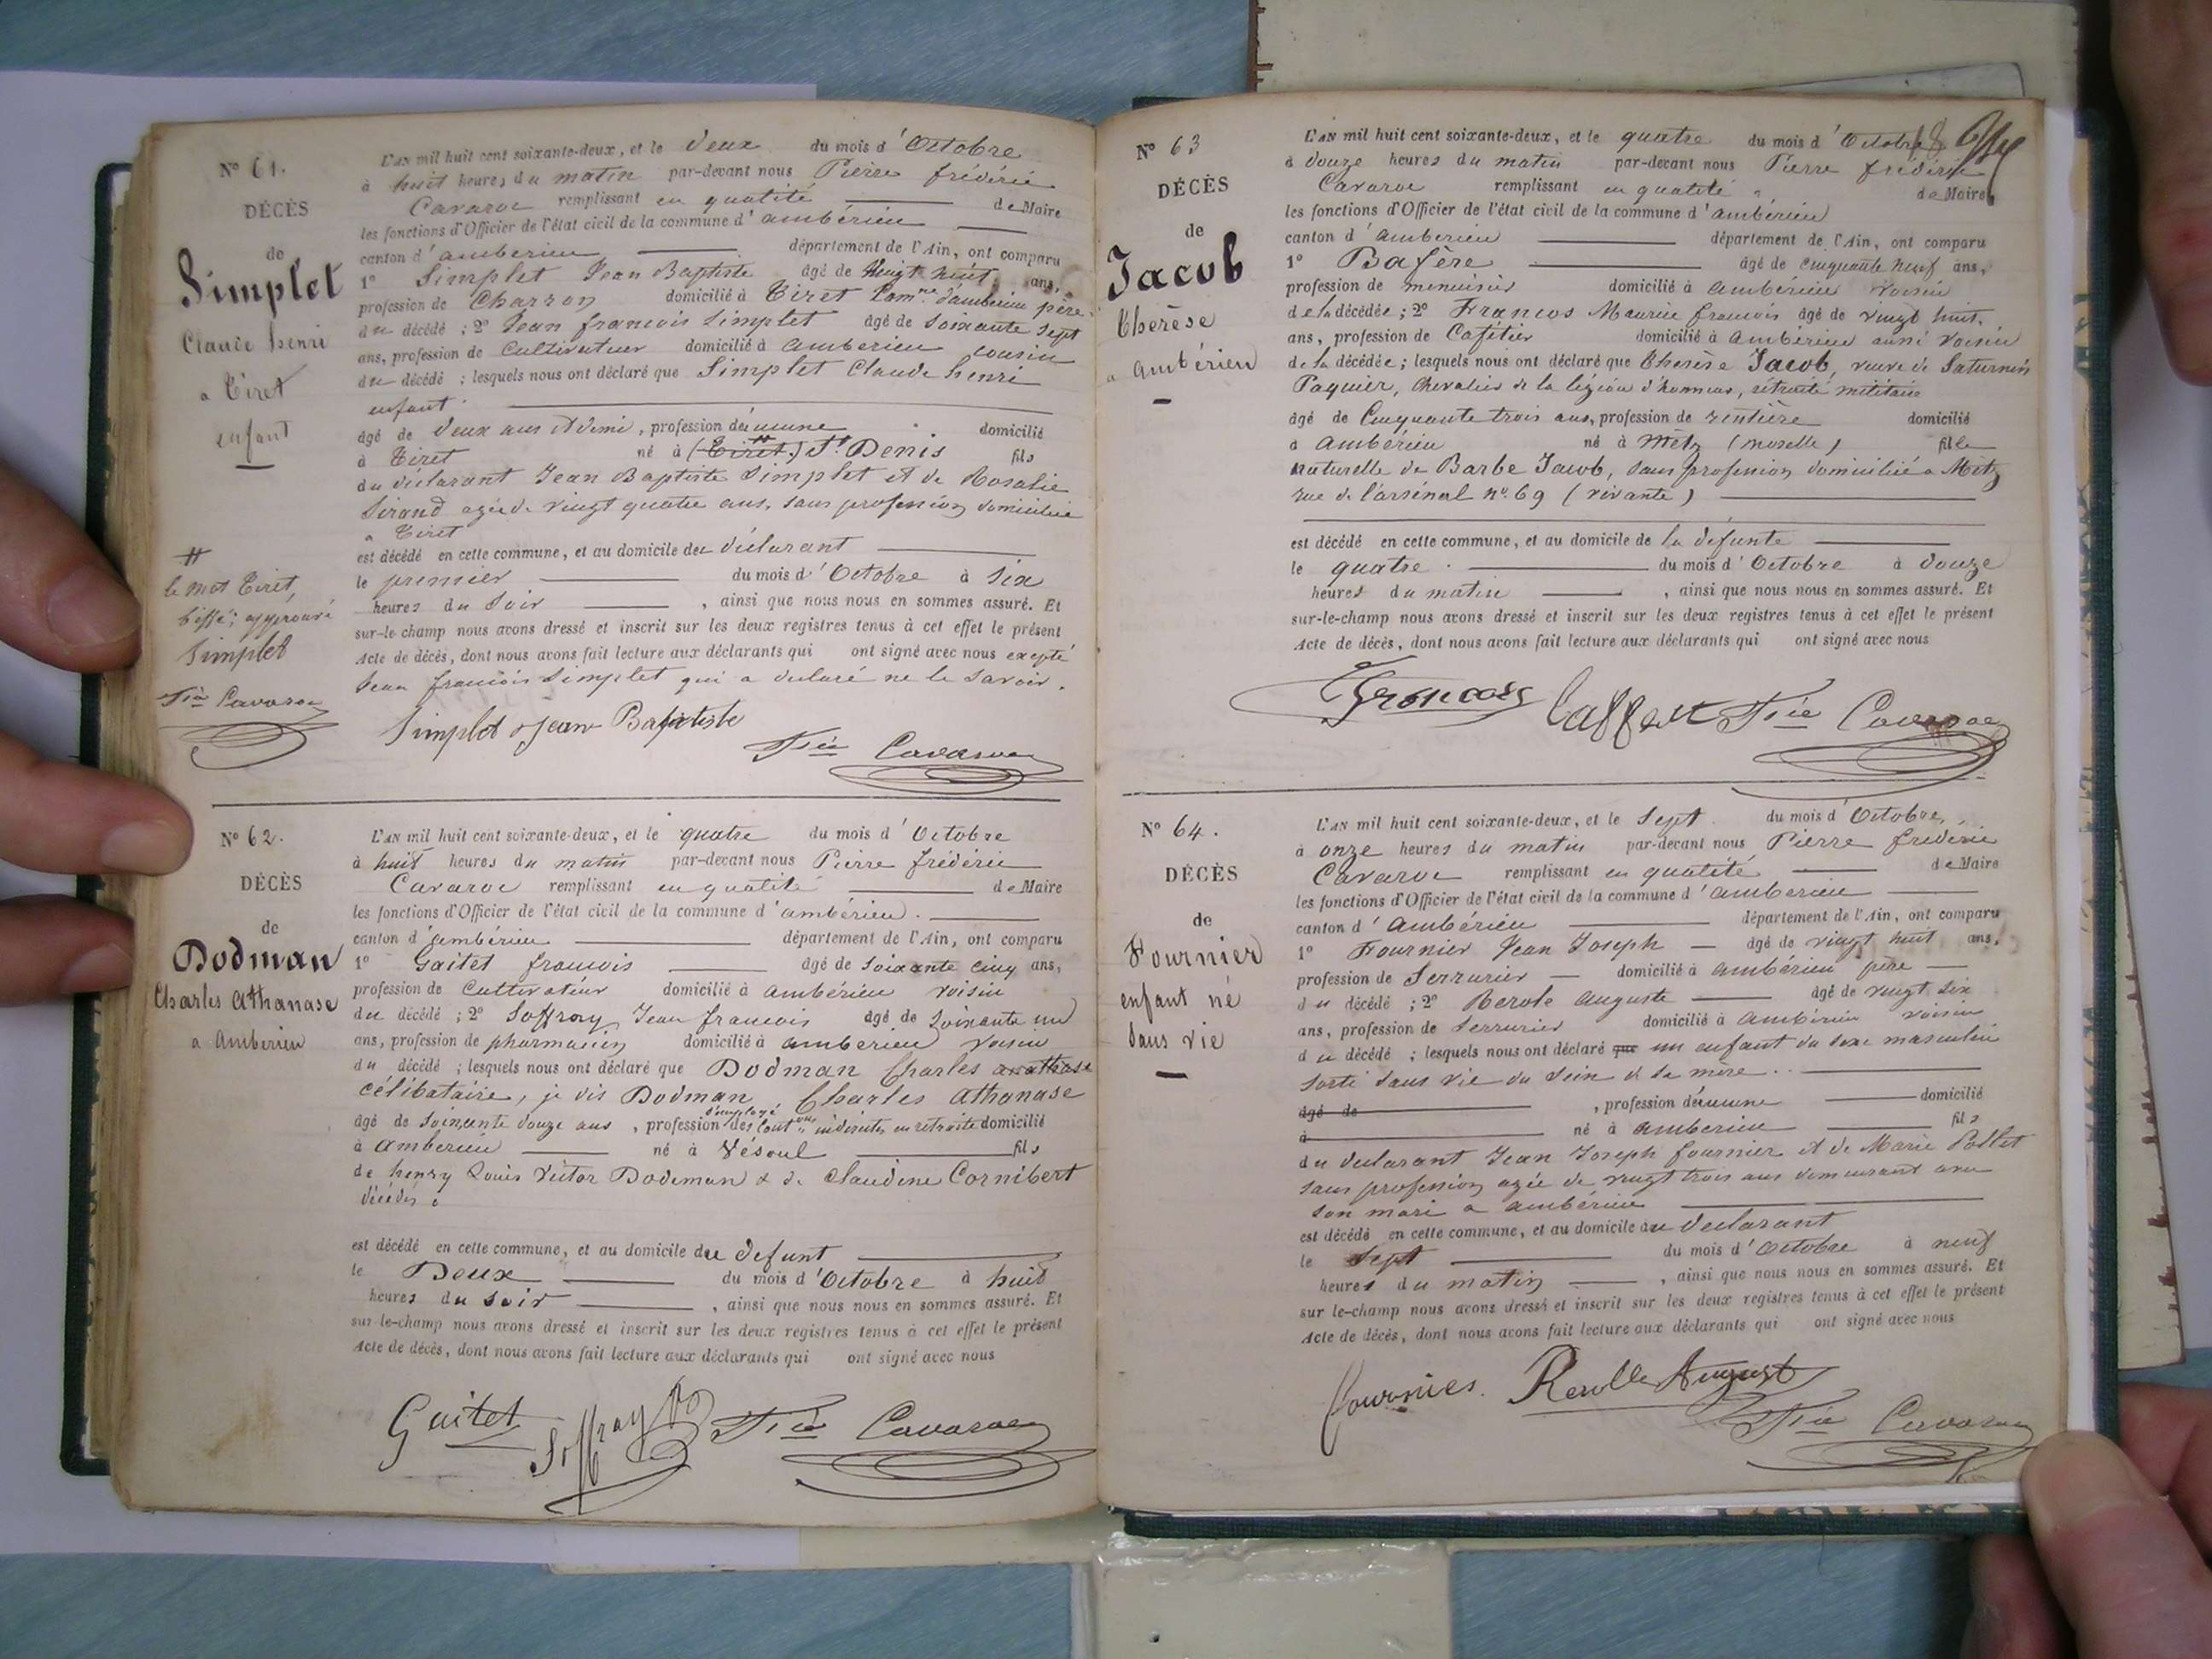 N° 61.
DÉCÈS
de
Simplet
Claude henri
a Tiret
enfant
L'AN mil huit cent soixante-deux, et le deux du mois d'Octobre
à huit heures du matin par-devant nous Pierre frédéric
Cavaroc remplissant en qualité de Maire
les fonctions d'Officier de l'état civil de la commune d'ambérieu
canton d'amberieu département de l'Ain, ont comparu
1° Simplet Jean Baptiste âgé de Vingt huit ans,
profession de Charron domicilié à Tiret Com.ne d'amberieu père
du décédé ; 2° Jean francois Simplet âgé de Soixante Sept
ans, profession de Cultivateur domicilié à Amberieu cousin
du décédé ; lesquels nous ont déclaré que Simplet Claude henri
enfant
âgé de deux ans et demi, profession d'aucune domicilié
à Tiret né à (Tiret.) St. Denis fils
du déclarant Jean Baptiste Simplet et de Rosalie
Sirand agée de vingt quatre ans, sans profession domiciliée
a Tiret
est décédé en cette commune, et au domicile du déclarant
le premier du mois d'Octobre à Six
heures du Soir , ainsi que nous nous en sommes assuré. Et
sur-le-champ nous avons dressé et inscrit sur les deux registres tenus à cet effet le présent
Acte de décès, dont nous avons fait lecture aux déclarants qui ont signé avec nous excepté
Jean francois Simplet qui a déclaré ne le savoir.
#
le mot Tiret,
biffé; approuvé
Simplet
Fric Cavaroc
Simplet Jean Baptiste
Fric Cavaroc
N° 62.
DÉCÈS
de
Dodman
Charles Athanase
a Amberieu
L'AN mil huit cent soixante-deux, et le quatre du mois d'Octobre
à huit heures du matin par-devant nous Pierre frédéric
Cavaroc remplissant en qualité de Maire
les fonctions d'Officier de l'état civil de la commune d'ambérieu.
canton d'ambérieu département de l'Ain, ont comparu
1° Gaitet francois âgé de Soixante cinq ans,
profession de Cultivateur domicilié à ambérieu voisin
du décédé ; 2° Soffroy Jean francois âgé de Soixante un
ans, profession de pharmacien domicilié à amberieu voisin
du décédé ; lesquels nous ont déclaré que Dodman Charles
célibataire, je dis Dodman Charles Athanase
âgé de Soixante douze ans , profession d'employé des Cont.ons indirectes en retraite domicilié
à Amberieu né à Vésoul fils
de henry Louis Victor Dodeman & de Claudine Cornibert
décédés
est décédé en cette commune, et au domicile du defunt
le Deux du mois d'Octobre à huit
heures du Soir , ainsi que nous nous en sommes assuré. Et
sur-le-champ nous avons dressé et inscrit sur les deux registres tenus à cet effet le présent
Acte de décès, dont nous avons fait lecture aux déclarants qui ont signé avec nous
Gaitet Soffroy Fric Cavaroc
N° 63
DÉCÈS
de
Jacob
Thérèse
a Ambérieu
L'AN mil huit cent soixante-deux, et le quatre du mois d'Octobre
à douze heures du matin par-devant nous Pierre frédéric
Cavaroc remplissant en qualité de Maire
les fonctions d'Officier de l'état civil de la commune d'ambérieu
canton d'amberieu département de l'Ain, ont comparu
1° Bafère âgé de Cinquante neuf ans,
profession de menuisier domicilié à Ambérieu voisin
de la décédée ; 2° Francos Maurice francois âgé de vingt huit.
ans, profession de Cafetier domicilié à Ambérieu aussi voisin
de la décédée ; lesquels nous ont déclaré que Thérèse Jacob, veuve de Saturnin
Paquier, Chevalier de la légion d'honneur, retraité militaire
âgé de Cinquante trois ans, profession de rentière domicilié
à Ambérieu né à Metz (Moselle) fille
naturelle de Barbe Jacob, sans profession domiciliée a Metz
rue de l'arsénal n° 69 (vivante)
est décédé en cette commune, et au domicile de la défunte
le quatre du mois d'Octobre à douze
heures du matin , ainsi que nous nous en sommes assuré. Et
sur-le-champ nous avons dressé et inscrit sur les deux registres tenus à cet effet le présent
Acte de décès, dont nous avons fait lecture aux déclarants qui ont signé avec nous
Fric Cavaroc
N° 64.
DÉCÈS
de
Fournier
enfant né
sans vie
L'AN mil huit cent soixante-deux, et le Sept du mois d'Octobre,
à onze heures du matin par-devant nous Pierre frédéric
Cavaroc remplissant en qualité de Maire
les fonctions d'Officier de l'état civil de la commune d'ambérieu
canton d'Ambérieu département de l'Ain, ont comparu
1° Fournier Jean Joseph âgé de vingt huit ans,
profession de Serrurier domicilié à ambérieu père
du décédé ; 2° Rerole Auguste âgé de vingt six
ans, profession de Serrurier domicilié à Ambérieu voisin
du décédé ; lesquels nous ont déclaré que un enfant du sexe masculin
sorti sans vie du sein de sa mère.
âgé de , profession d'aucune domicilié
à né à amberieu fils
du déclarant Jean Joseph fournier et de Marie Pollet
sans profession agée de vingt trois ans demeurant avec
son mari a ambérieu
est décédé en cette commune, et au domicile du déclarant
le Sept du mois d'Octobre à neuf
heures du matin , ainsi que nous nous en sommes assuré. Et
sur le-champ nous avons dressé et inscrit sur les deux registres tenus à cet effet le présent
Acte de décès, dont nous avons fait lecture aux déclarants qui ont signé avec nous
fournier. Rerolle August
Fric Cavaroc